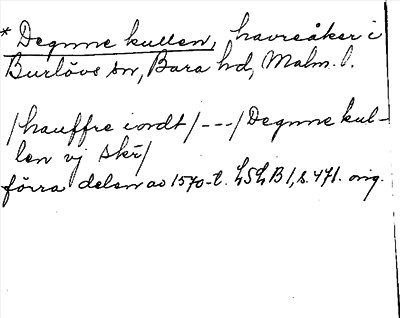 * Degnne kullen, havreåker i
Burlövs sn, Bara hd, Malm. l.
/hauffre iordt/ --- /Degnne kul-
len vj skr/
förra delen av 1570-t. LSLB 1, s. 471. orig.